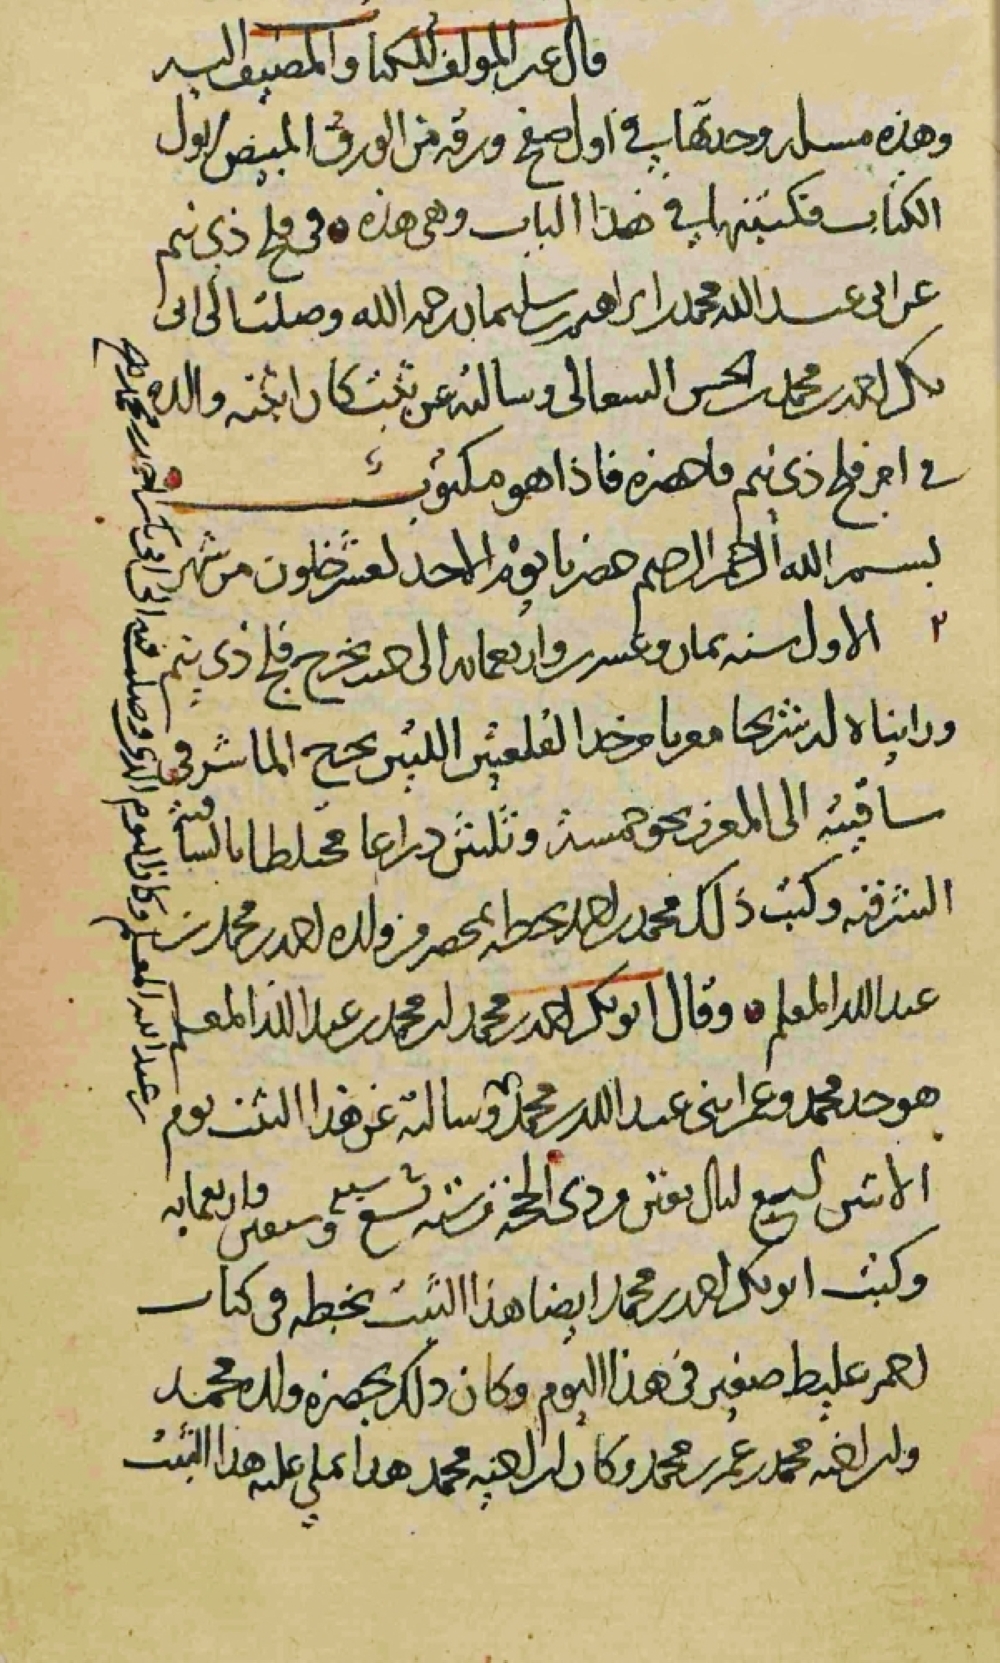 قال غير المولف للكتاب والمضيف اليه
وهذه مسلة وجدتها في اول صفح ورقة من الورق المبيض اول
الكتاب فكتبتها في هذا الباب وهي هذه في فلج ذي نيم
عن ابي عبد الله محمد بن ابراهيم بن سليمان رحمه الله وصلت الى ابي
بكر احمد بن محمد بن الحسن السعالي وسالته عن ثبت كان اثبته والده
في امر فلج ذي نيم فاحضره فاذا هو مكتوب
بسم الله الرحمن الرحيم حضرنا يوم الاحد لعشر خلون من شهر
الاول سنة ثمان وعشرين واربعماية الى حيث يخرج فلج ذي نيم
ورايناه له شريجا معربا من حد الفلجين اللتين بجح الما شرقي
ساقيته الى المغرب نحو خمسة وثلثين ذراعا مختلطا بالساقية
الشرقية وكتب ذلك محمد بن احمد بخطه بمحضر من ولده احمد بن محمد بن
عبد الله المعلم وقال ابو بكر احمد بن محمد ان محمد بن عبد الله المعلم
هو جد محمد وعمر ابني عبد الله بن محمد وسالته عن هذا الثبت يوم
الاثنين لسبع ليال بقين من ذي الحجة من سنة تسع وسبعين واربعماية
وكتب ابو بكر احمد بن محمد ايضا هذا الثبت بخطه في كتاب
احمر غليظ صغير في هذا اليوم وكان ذلك بحضرة ولده محمد
وابن اخيه محمد بن عمر بن محمد وكان ابن اخيه محمد هذا يملي عليه هذا الثبت